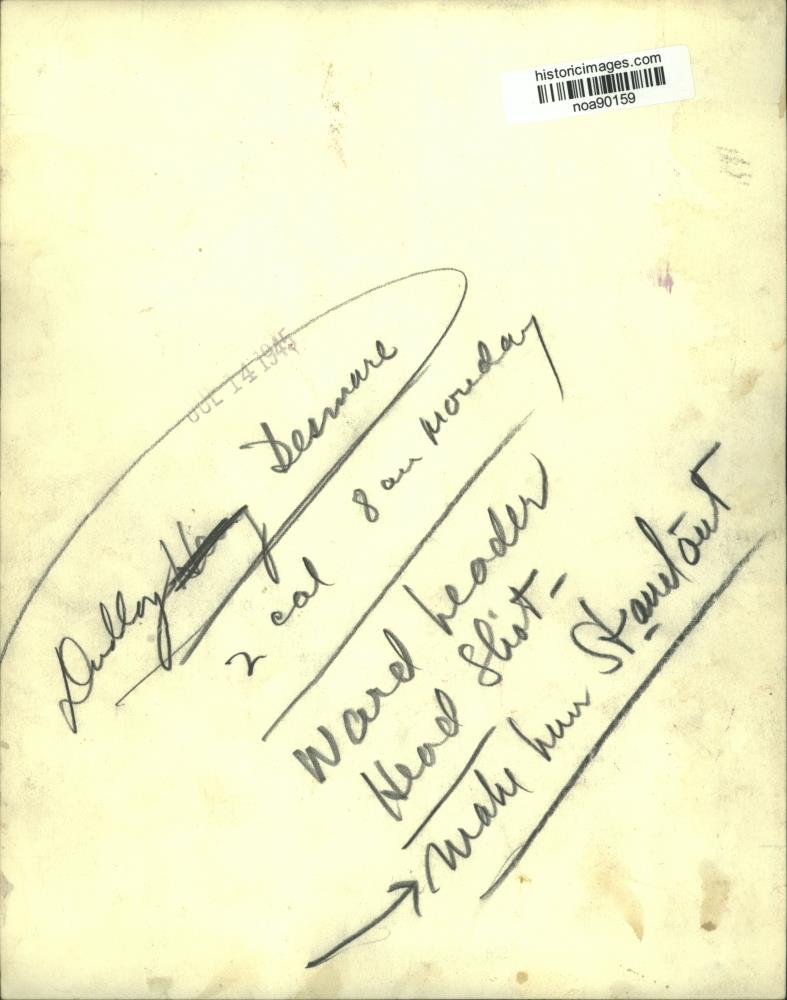 historicimages.com
noa90159
JUL 14 1945
Dudley Desmare
2 col 8 am Monday
Ward Leader
Head Shot -
→ Make him Stand out